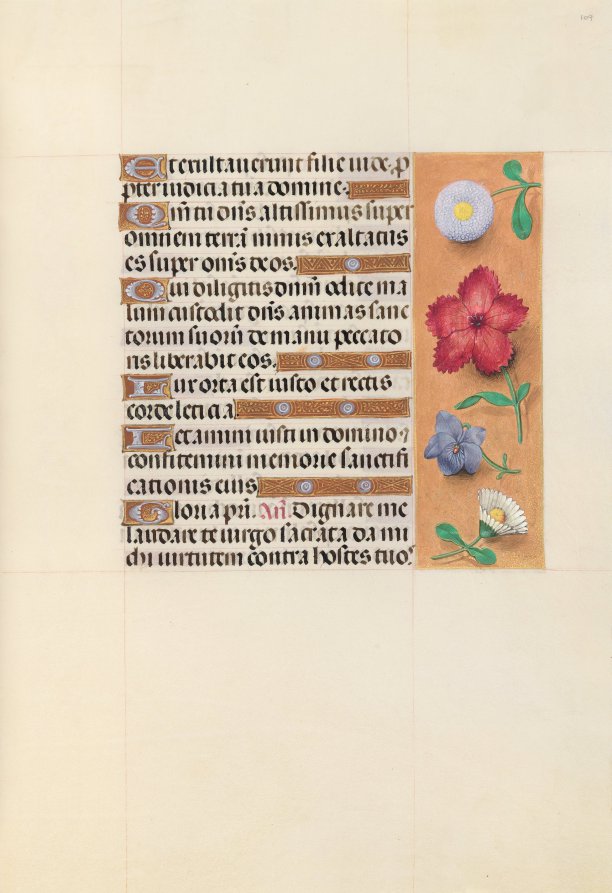 109
Et exultaverunt filie iude. p̱
pter iudicia tua domine.
Qm̄ tu dn̄s altissimus super
omnem terrā nimis exaltatus
es super om̄s deos.
Qui diligitis dn̄m odite ma
lum custodit dn̄s animas sanc
torum suorū de manu peccato
ris liberabit eos.
Lux orta est iusto et rectis
corde leticia
Letamini iusti in domino ⁊
confitemini memorie sanctifi
cationis eius
Gloria pr̄i. An̄. Dignare me
laudare te virgo sacrata da mi
chi virtutem contra hostes tuos.